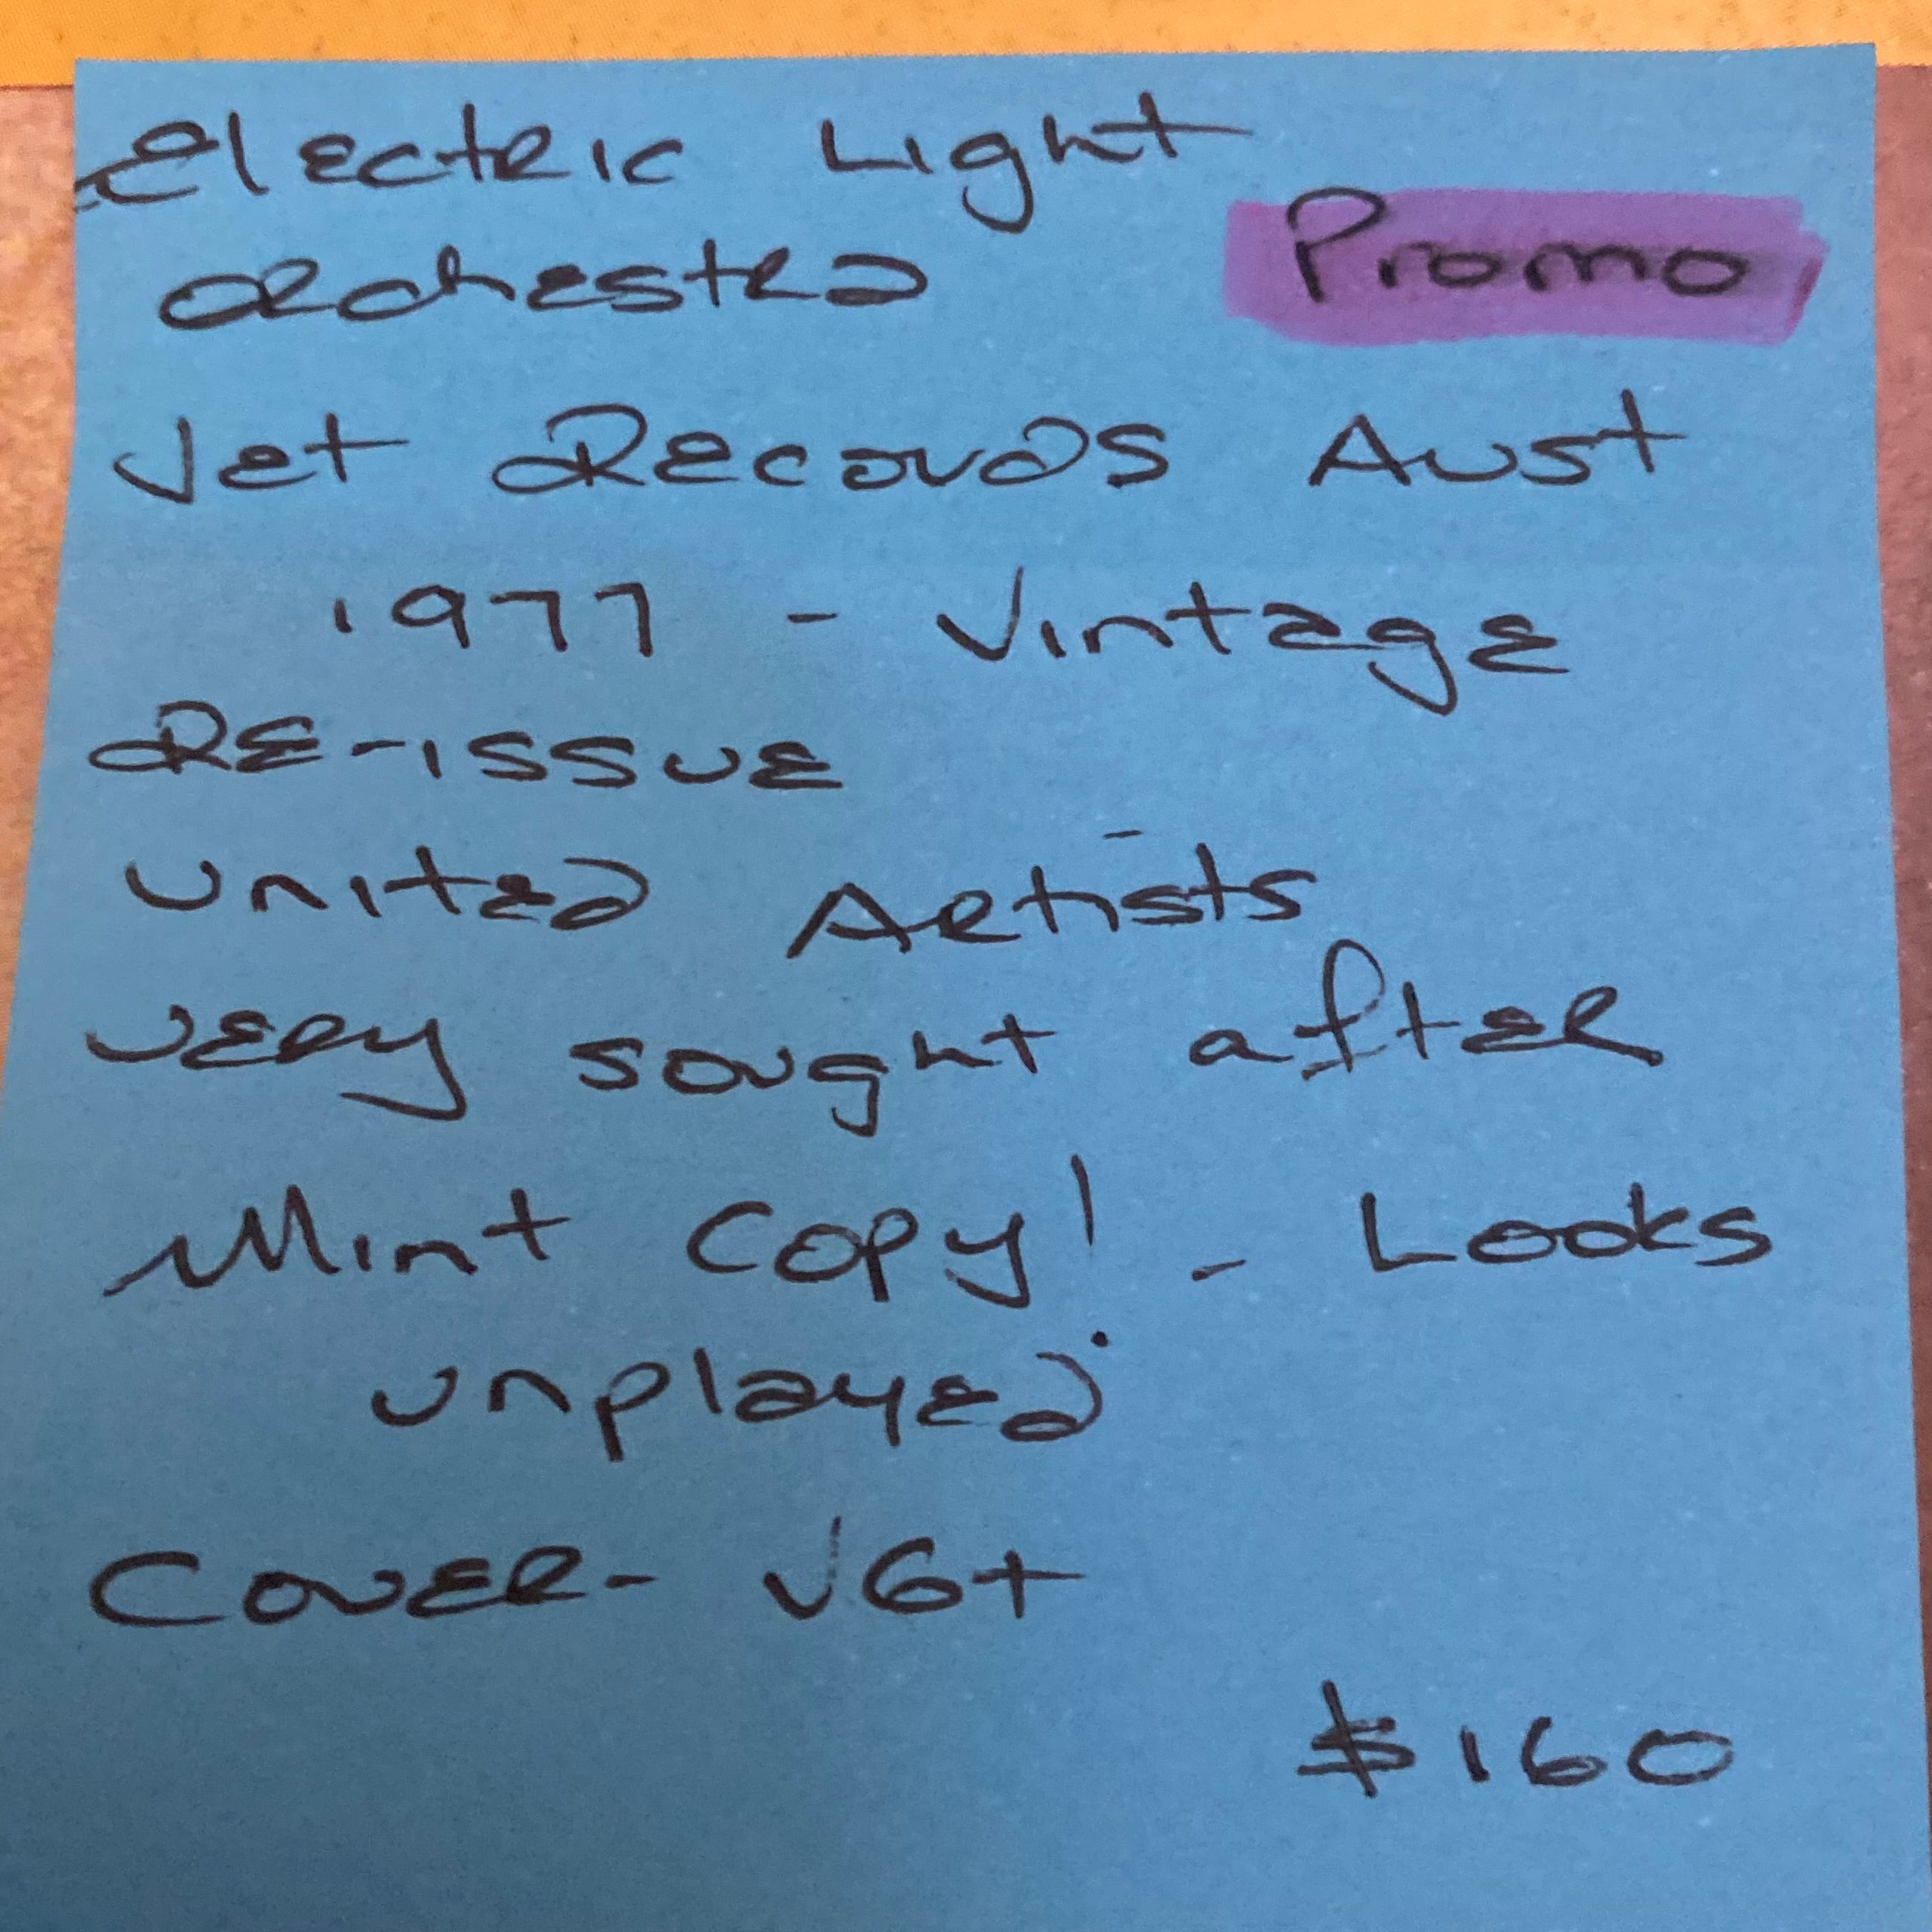 Electric Light
Orchestra
Promo
Jet Records Aust
1977 - Vintage
RE-ISSUE
United Artists
Very sought after
Mint Copy! - Looks
unplayed
Cover - VG+
$160